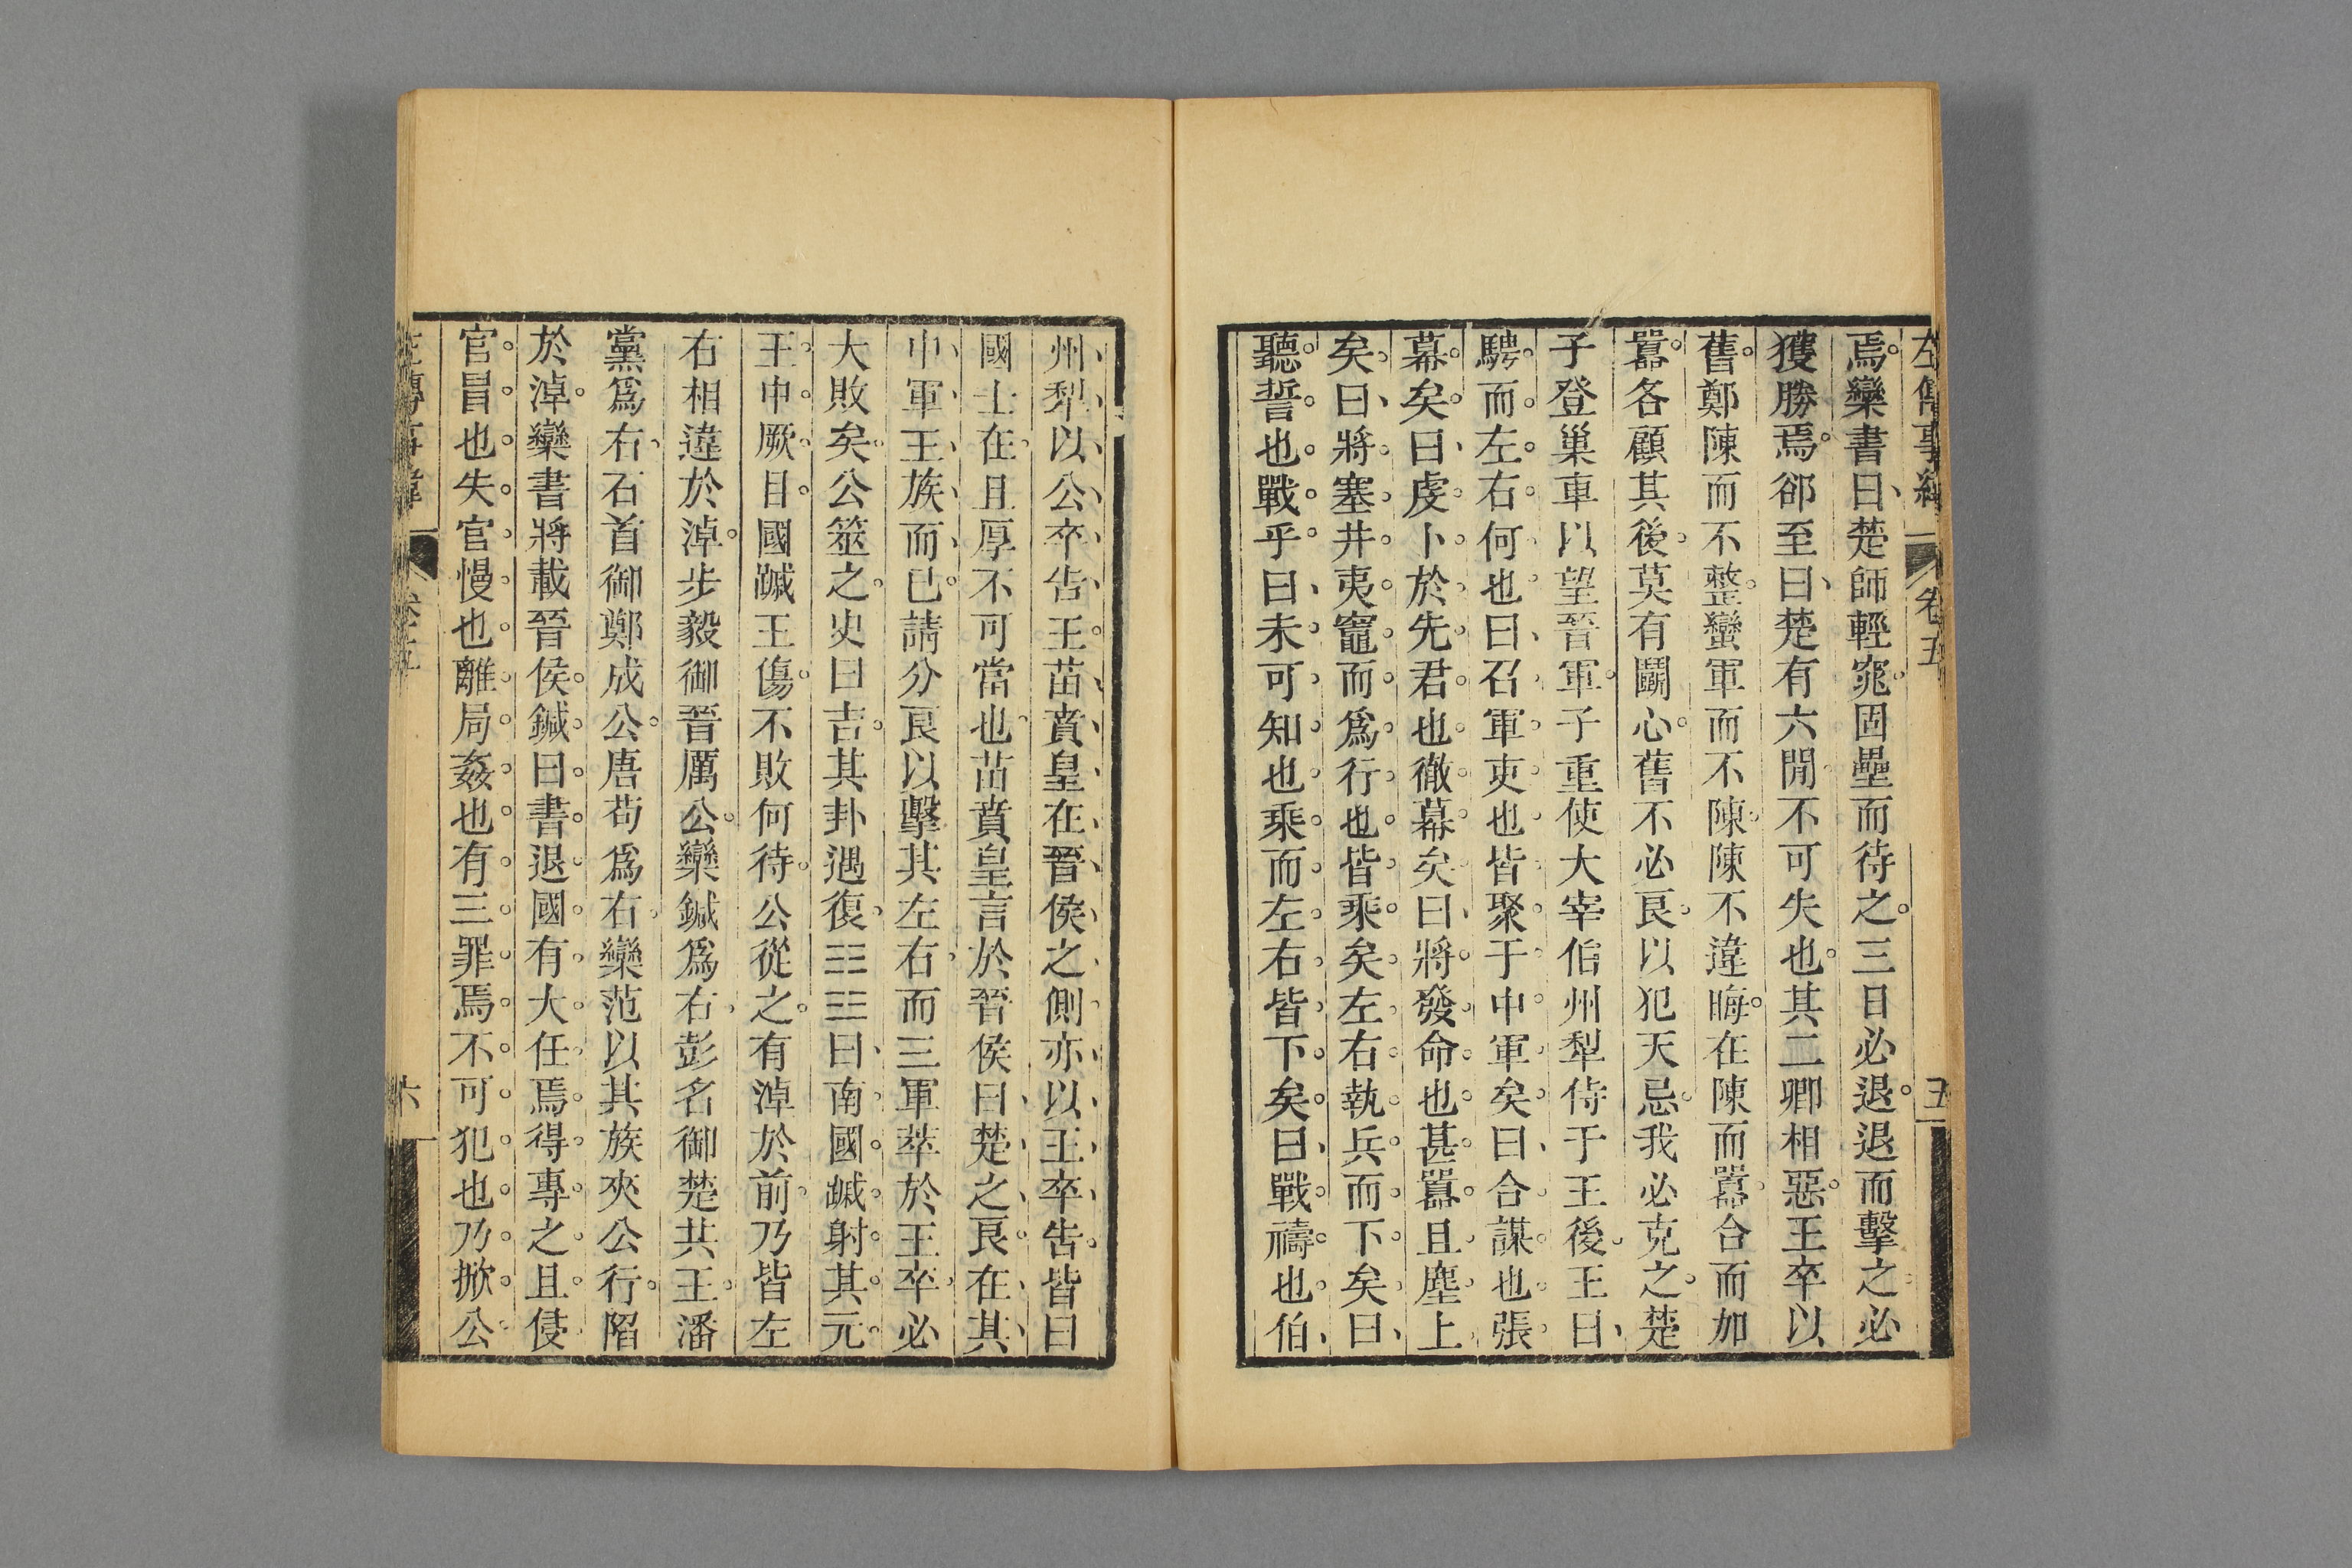 左傳事緯 卷五 五
焉欒書曰楚師輕窕固壘而待之三日必退退而擊之必
獲勝焉郤至曰楚有六閒不可失也其二卿相惡王卒以
舊鄭陳而不整蠻軍而不陳陳不違晦在陳而嚚合而加
嚚各顧其後莫有鬭心舊不必良以犯天忌我必克之楚
子登巢車以望晉軍子重使大宰伯州犁侍于王後王曰
騁而左右何也曰召軍吏也皆聚于中軍矣曰合謀也張
幕矣曰虔卜於先君也徹幕矣曰將發命也甚嚚且塵上
矣曰將塞井夷竈而爲行也皆乘矣左右執兵而下矣曰
聽誓也戰乎曰未可知也乘而左右皆下矣曰戰禱也伯
州犁以公卒告王苗賁皇在晉侯之側亦以王卒告皆曰
國士在且厚不可當也苗賁皇言於晉侯曰楚之良在其
中軍王族而已請分良以擊其左右而三軍萃於王卒必
大敗矣公筮之史曰吉其卦遇復☷☳曰南國䠞射其元
王中厥目國䠞王傷不敗何待公從之有淖於前乃皆左
右相違於淖步毅御晉厲公欒鍼爲右彭名御楚共王潘
黨爲右石首御鄭成公唐苟爲右欒范以其族夾公行陷
於淖欒書將載晉侯鍼曰書退國有大任焉得專之且侵
官冒也失官慢也離局姦也有三罪焉不可犯也乃掀公
左傳事緯 卷五 六